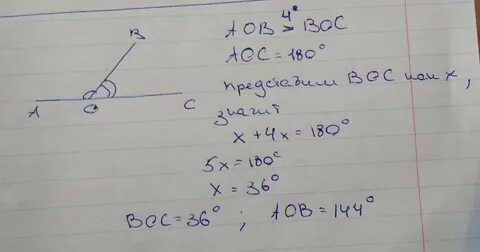 B
A O C
AOB 4* > BOC
AOC = 180°
представим BOC как x,
значит
x + 4x = 180°
5x = 180°
x = 36°
BOC = 36° ; AOB = 144°